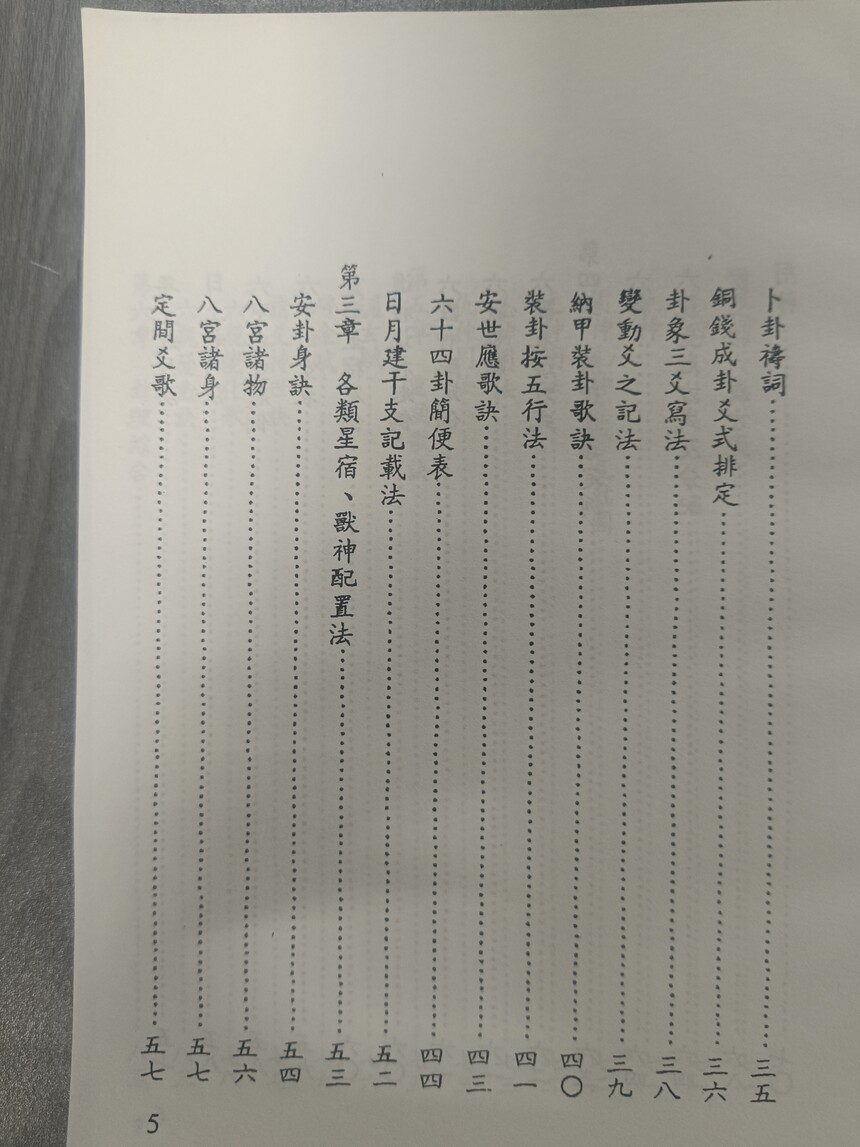 卜卦禱詞…………三五
銅錢成卦爻式排定…………三六
卦象三爻寫法…………三八
變動爻之記法…………三九
納甲裝卦歌訣…………四〇
裝卦按五行法…………四一
安世應歌訣…………四三
六十四卦簡便表…………四四
日月建干支記載法…………五二
第三章 各類星宿、獸神配置法…………五三
安卦身訣…………五四
八宮諸物…………五六
八宮諸身…………五七
定間爻歌…………五七
5